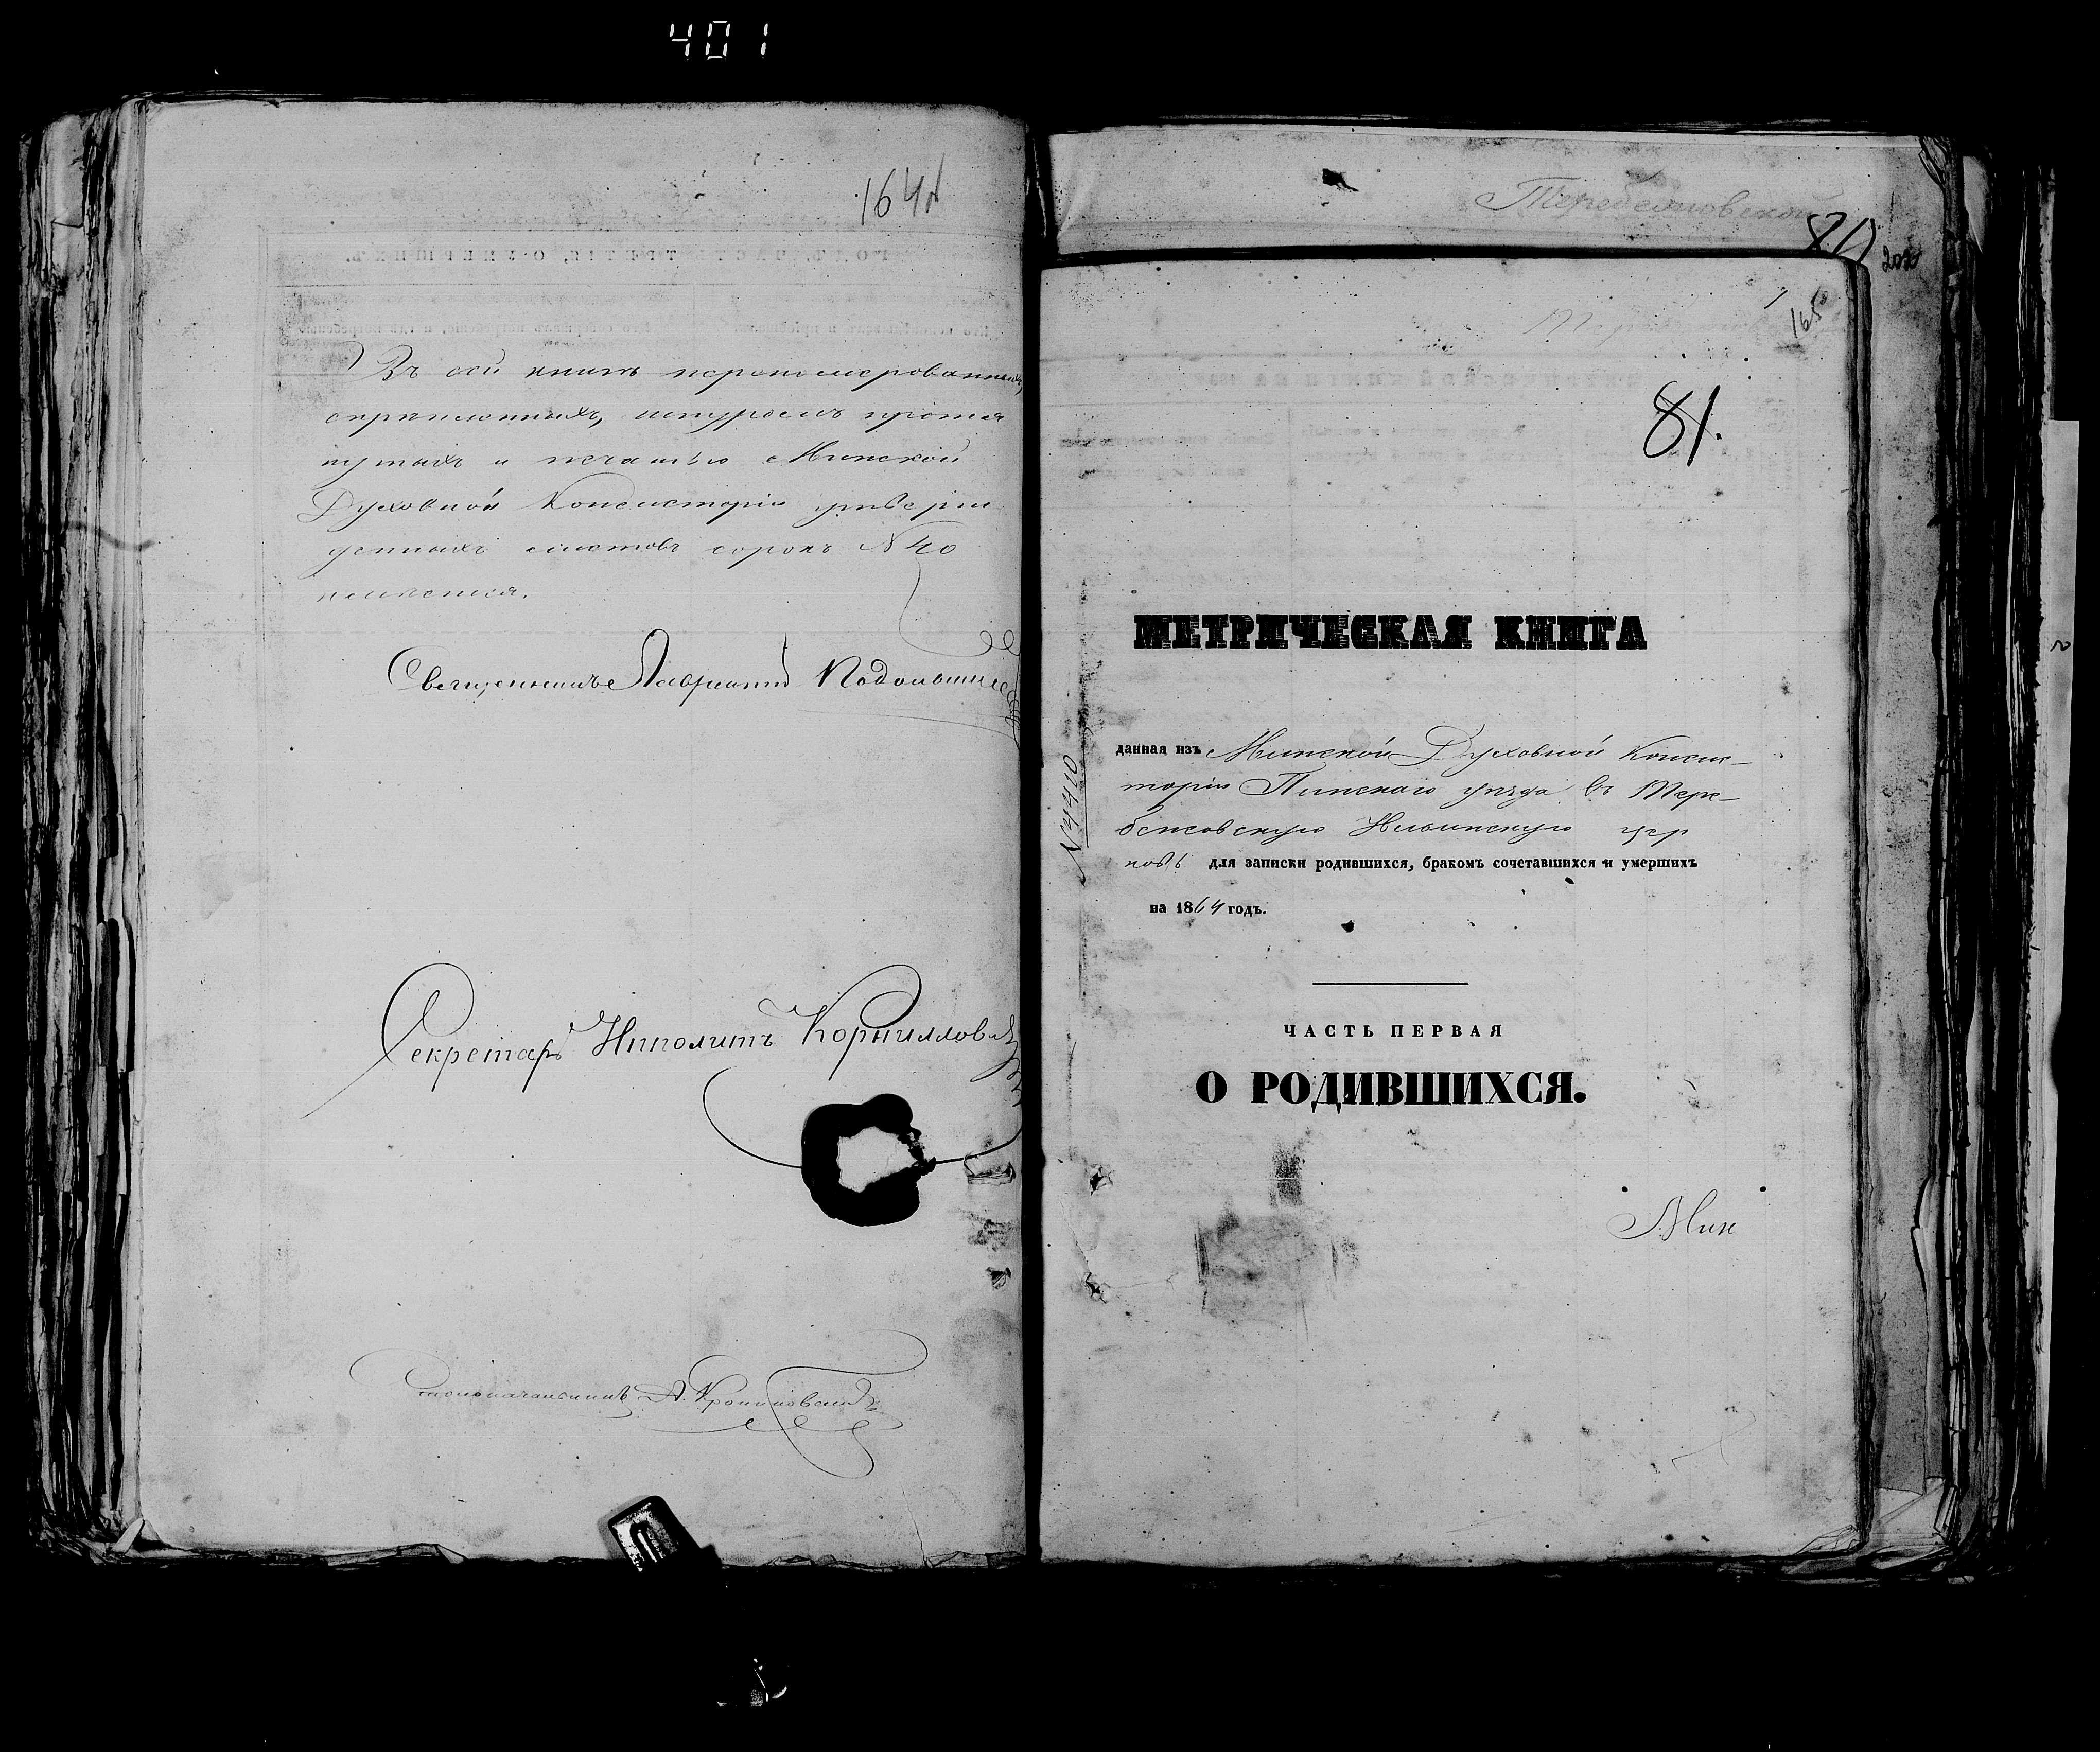 401
164
Въ сей книгѣ перономерованныхъ,
скрѣпленныхъ, шнуромъ протя
нутыхъ и печатью Минской
Духовной Консисторіи утверж
денныхъ листовъ сорокъ N 40
имѣется.
Священникъ Лаврентій
Секретарь Ипполитъ Корнилловъ
Столоначальникъ А.
81.
165
N 4410
МЕТРИЧЕСКАЯ КНИГА
данная изъ Минской Духовной Консис-
торіи Пинскаго уѣзда въ Тере-
бежовскую Ильинскую цер
ковь для записки родившихся, бракомъ сочетавшихся и умершихъ
на 1864 годъ.
ЧАСТЬ ПЕРВАЯ
О РОДИВШИХСЯ.
Мин